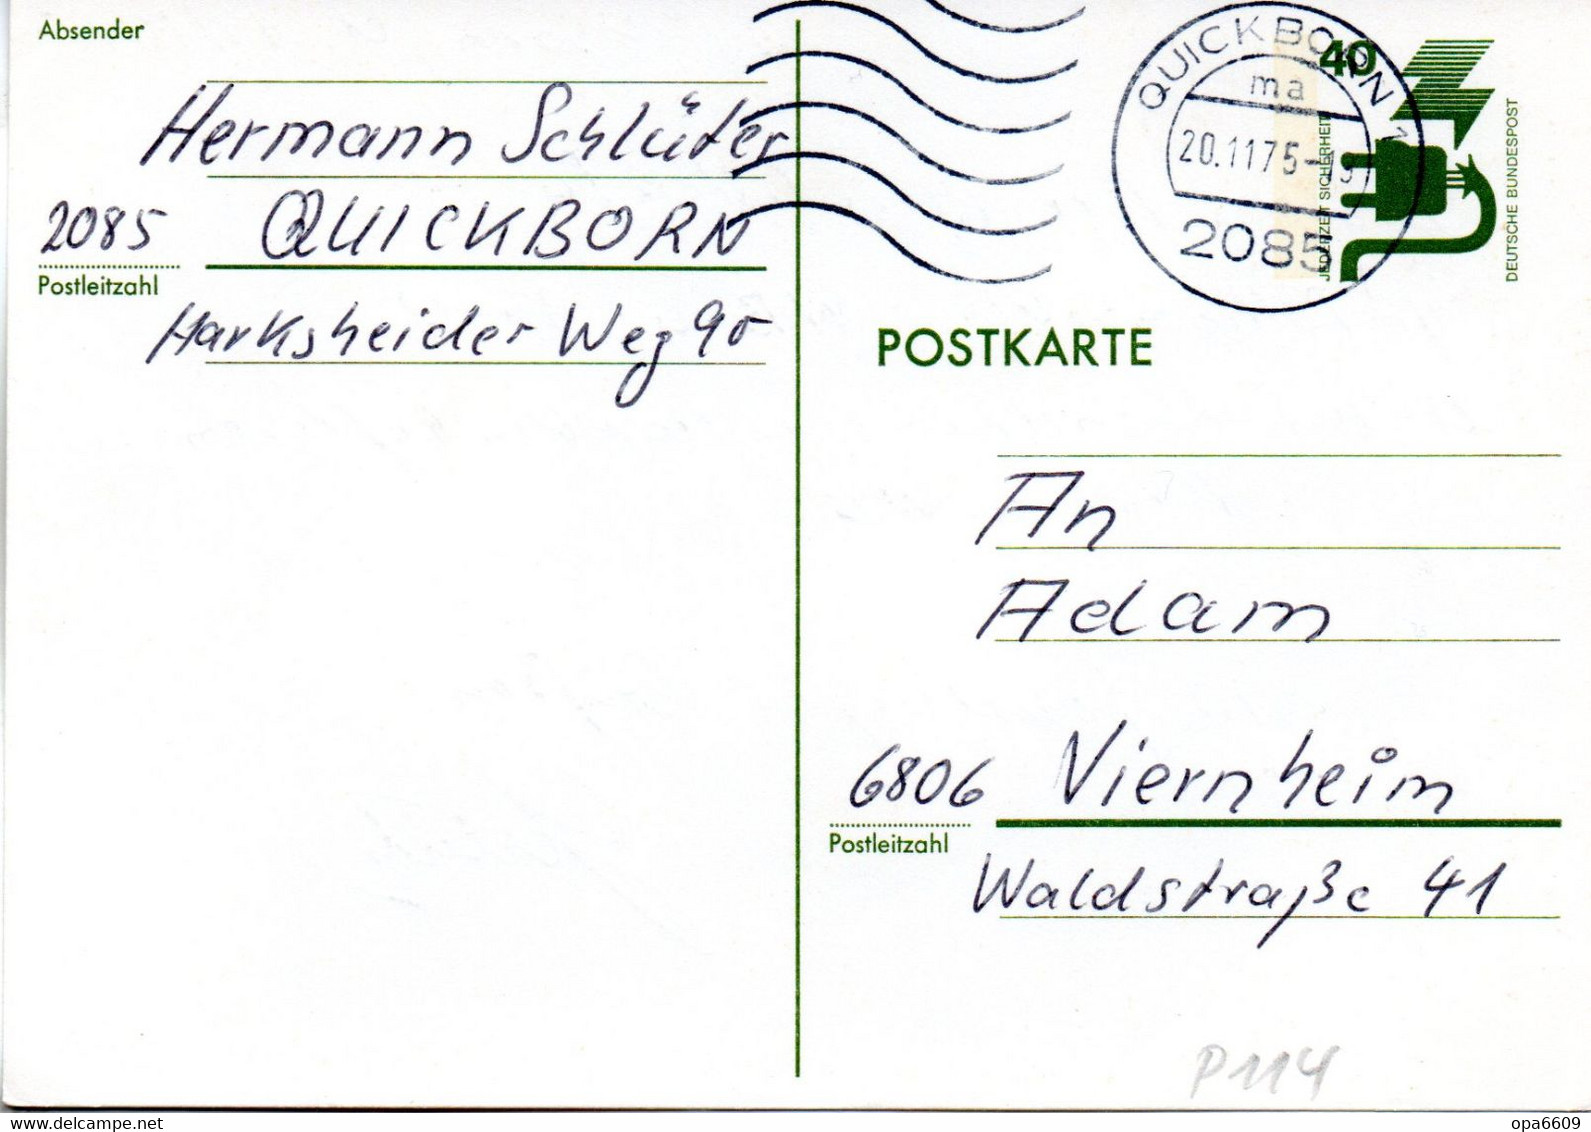 Absender
Hermann Schlüter
2085 QUICKBORN
Postleitzahl
Harksheider Weg 90
QUICKBORN 1
ma
20.11.75-19
2085
40
JEDERZEIT SICHERHEIT
DEUTSCHE BUNDESPOST
POSTKARTE
An
Adam
6806 Viernheim
Postleitzahl
Waldstraße 41
P114
delcampe.net
opa6609